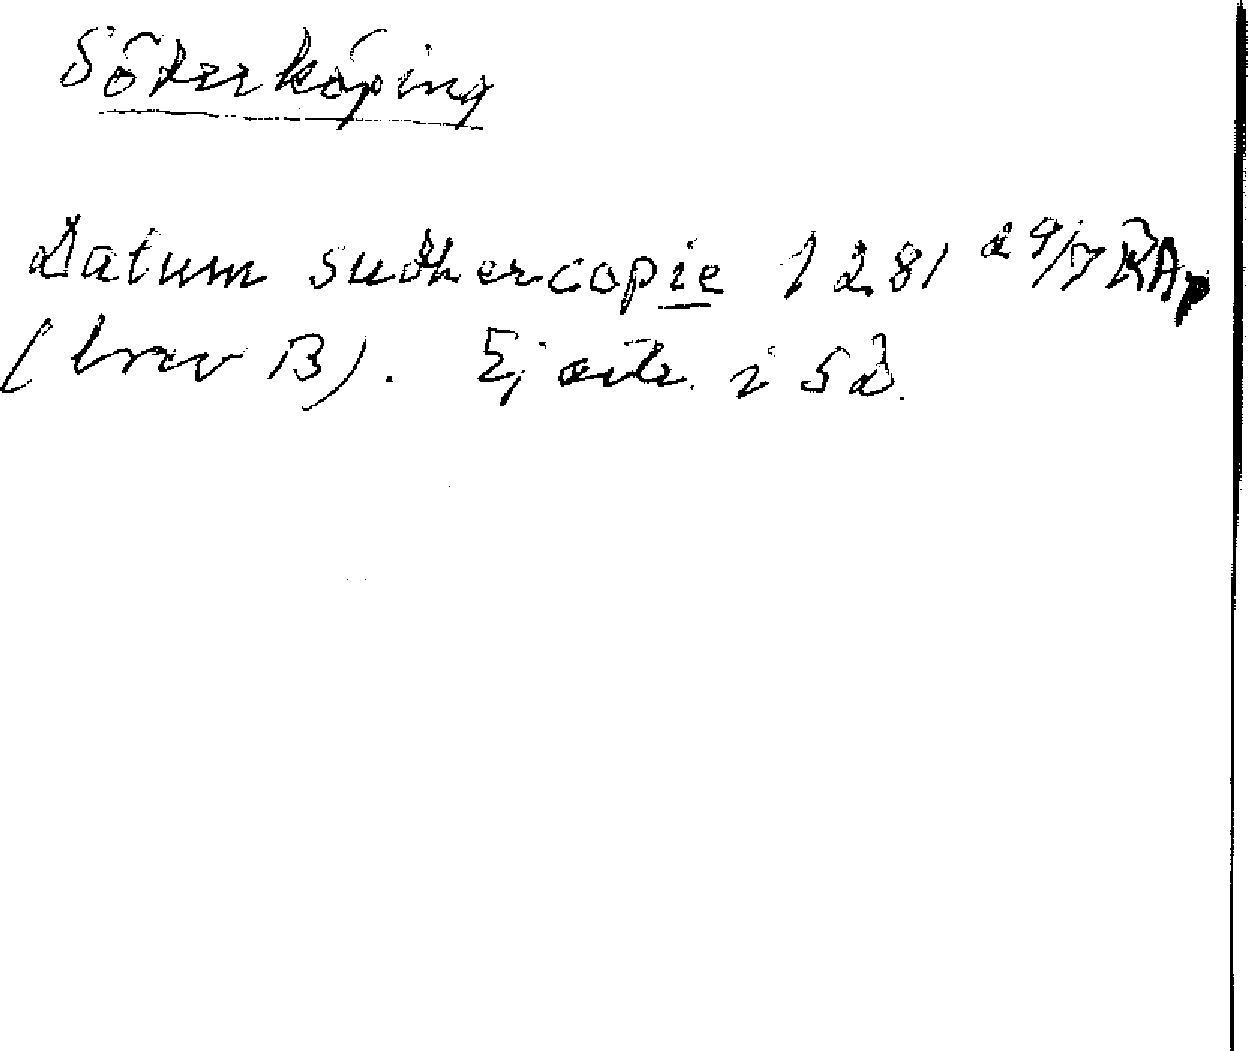 Söderköping
Datum sudhercopie 1281 29/5 RAp
(brev B). Ej avtr. i SD.